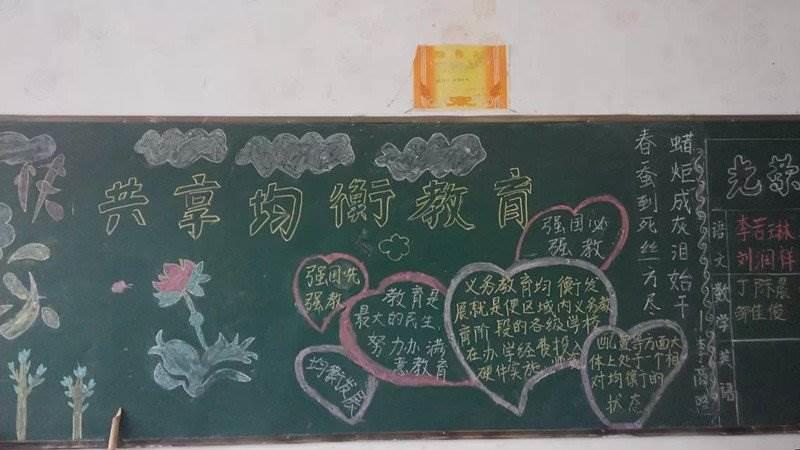 共享均衡教育
强国必
强教
强国先
强教
教育是
最大的民生,
努力办满
意教育
均衡发展
义务教育均衡发
展就是使区域内义务教
育阶段的各级学校
在办学经费投入
硬件实施
等方面大
体上处于一个相
对均衡的
状态
春蚕到死丝方尽
蜡炬成灰泪始干
李商隐
光荣
语文
李若琳
刘润祥
数学
丁陈晨
邹佳俊
英语